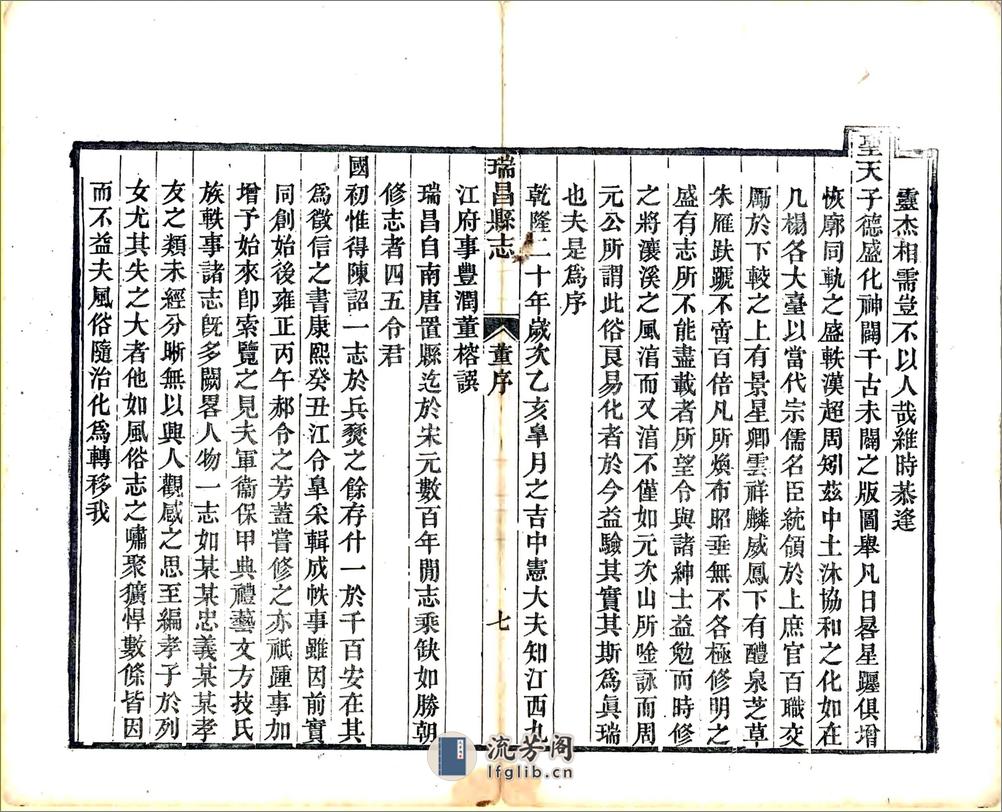 靈杰相需豈不以人哉維時恭逢
聖天子德盛化神闢千古未闢之版圖舉凡日晷星躔俱增
恢廓同軌之盛軼漢超周矧茲中土沐協和之化如在
几榻各大臺以當代宗儒名臣統領於上庶官百職交
勵於下較之上有景星卿雲祥麟威鳳下有醴泉芝草
朱雁趺蹏不啻百倍凡所煥布昭垂無不各極修明之
盛有志所不能盡載者所望令與諸紳士益勉而時修
之將瀼溪之風涫而又涫不僅如元次山所唫詠而周
元公所謂此俗良易化者於今益驗其實其斯為眞瑞
也夫是為序
乾隆二十年歲次乙亥臯月之吉中憲大夫知江西九
江府事豐潤董榕譔
瑞昌縣志
董序
七
瑞昌自南唐置縣迄於宋元數百年閒志乘缺如勝朝
修志者四五令君
國初惟得陳詔一志於兵燹之餘存什一於千百安在其
為徵信之書康熙癸丑江令臯采輯成帙事雖因前實
同創始後雍正丙午郝令之芳蓋嘗修之亦祇踵事加
增予始來卽索覽之見夫軍衞保甲典禮藝文方技氏
族軼事諸志旣多闕畧人物一志如某某忠義某某孝
友之類未經分晰無以興人觀感之思至編孝子於列
女尤其失之大者他如風俗志之嘯聚獷悍數條皆因
而不益夫風俗隨治化為轉移我
流芳阁
lfglib.cn